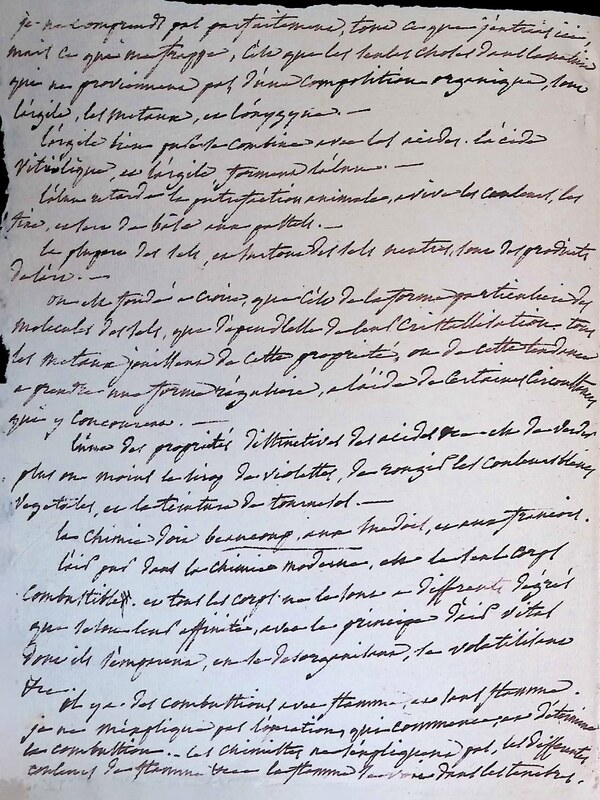 je ne comprends pas parfaitement, tout ce que j'entens ici,
mais ce qui me frappe, c'est que les seules choses dans la nature
qui ne proviennent pas d'une composition organique, sont
l'argile, les metaux, et l'oxygyne. —
l'argile bien pure se combine avec les acides. l'acide
vitriolique, et l'argile forment l'alun. —
l'alun retarde la putrefaction animale, avive les couleurs, les
fixe, et sert de base aux pastels. —
la plupart des sels, et surtout des sels neutres, sont des produits
de l'art. —
on est fondé a croire, que c'est de la forme particuliere des
molecules des sels, que depend celle de leur cristallisation. tous
les metaux jouissent de cette propriété, ou de cette tendance
a prendre une forme réguliere, a l'aide de certaines circonstances
qui y concourent. —
l'une des propriétés distinctives des acides est de verdir
plus ou moins le sirop de violettes, de rougir les couleurs bleues
vegetales, et la teinture de tournesol. —
la chimie doit beaucoup, aux suedois, et aux francois.
l'air pur dans la chimie moderne, est le seul corps
combustible. et tous les corps ne le sont a differents dégrés
que selon leur affinité, avec le principe d'air vital
dont ils s'emparent, et se desorganisent, se volatilisent
&c.
il y a des combustions avec flamme, et sans flamme.
je ne m'explique pas l'operation, qui commence, et détermine
la combustion. — les chimistes ne s'expliquent pas, les differentes
couleurs de flamme la flamme dans les tenebres.